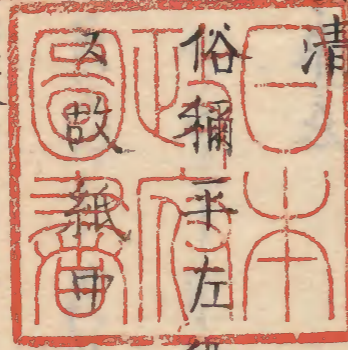 清
俗稱平左
ス故紙中
日本
政府
圖書